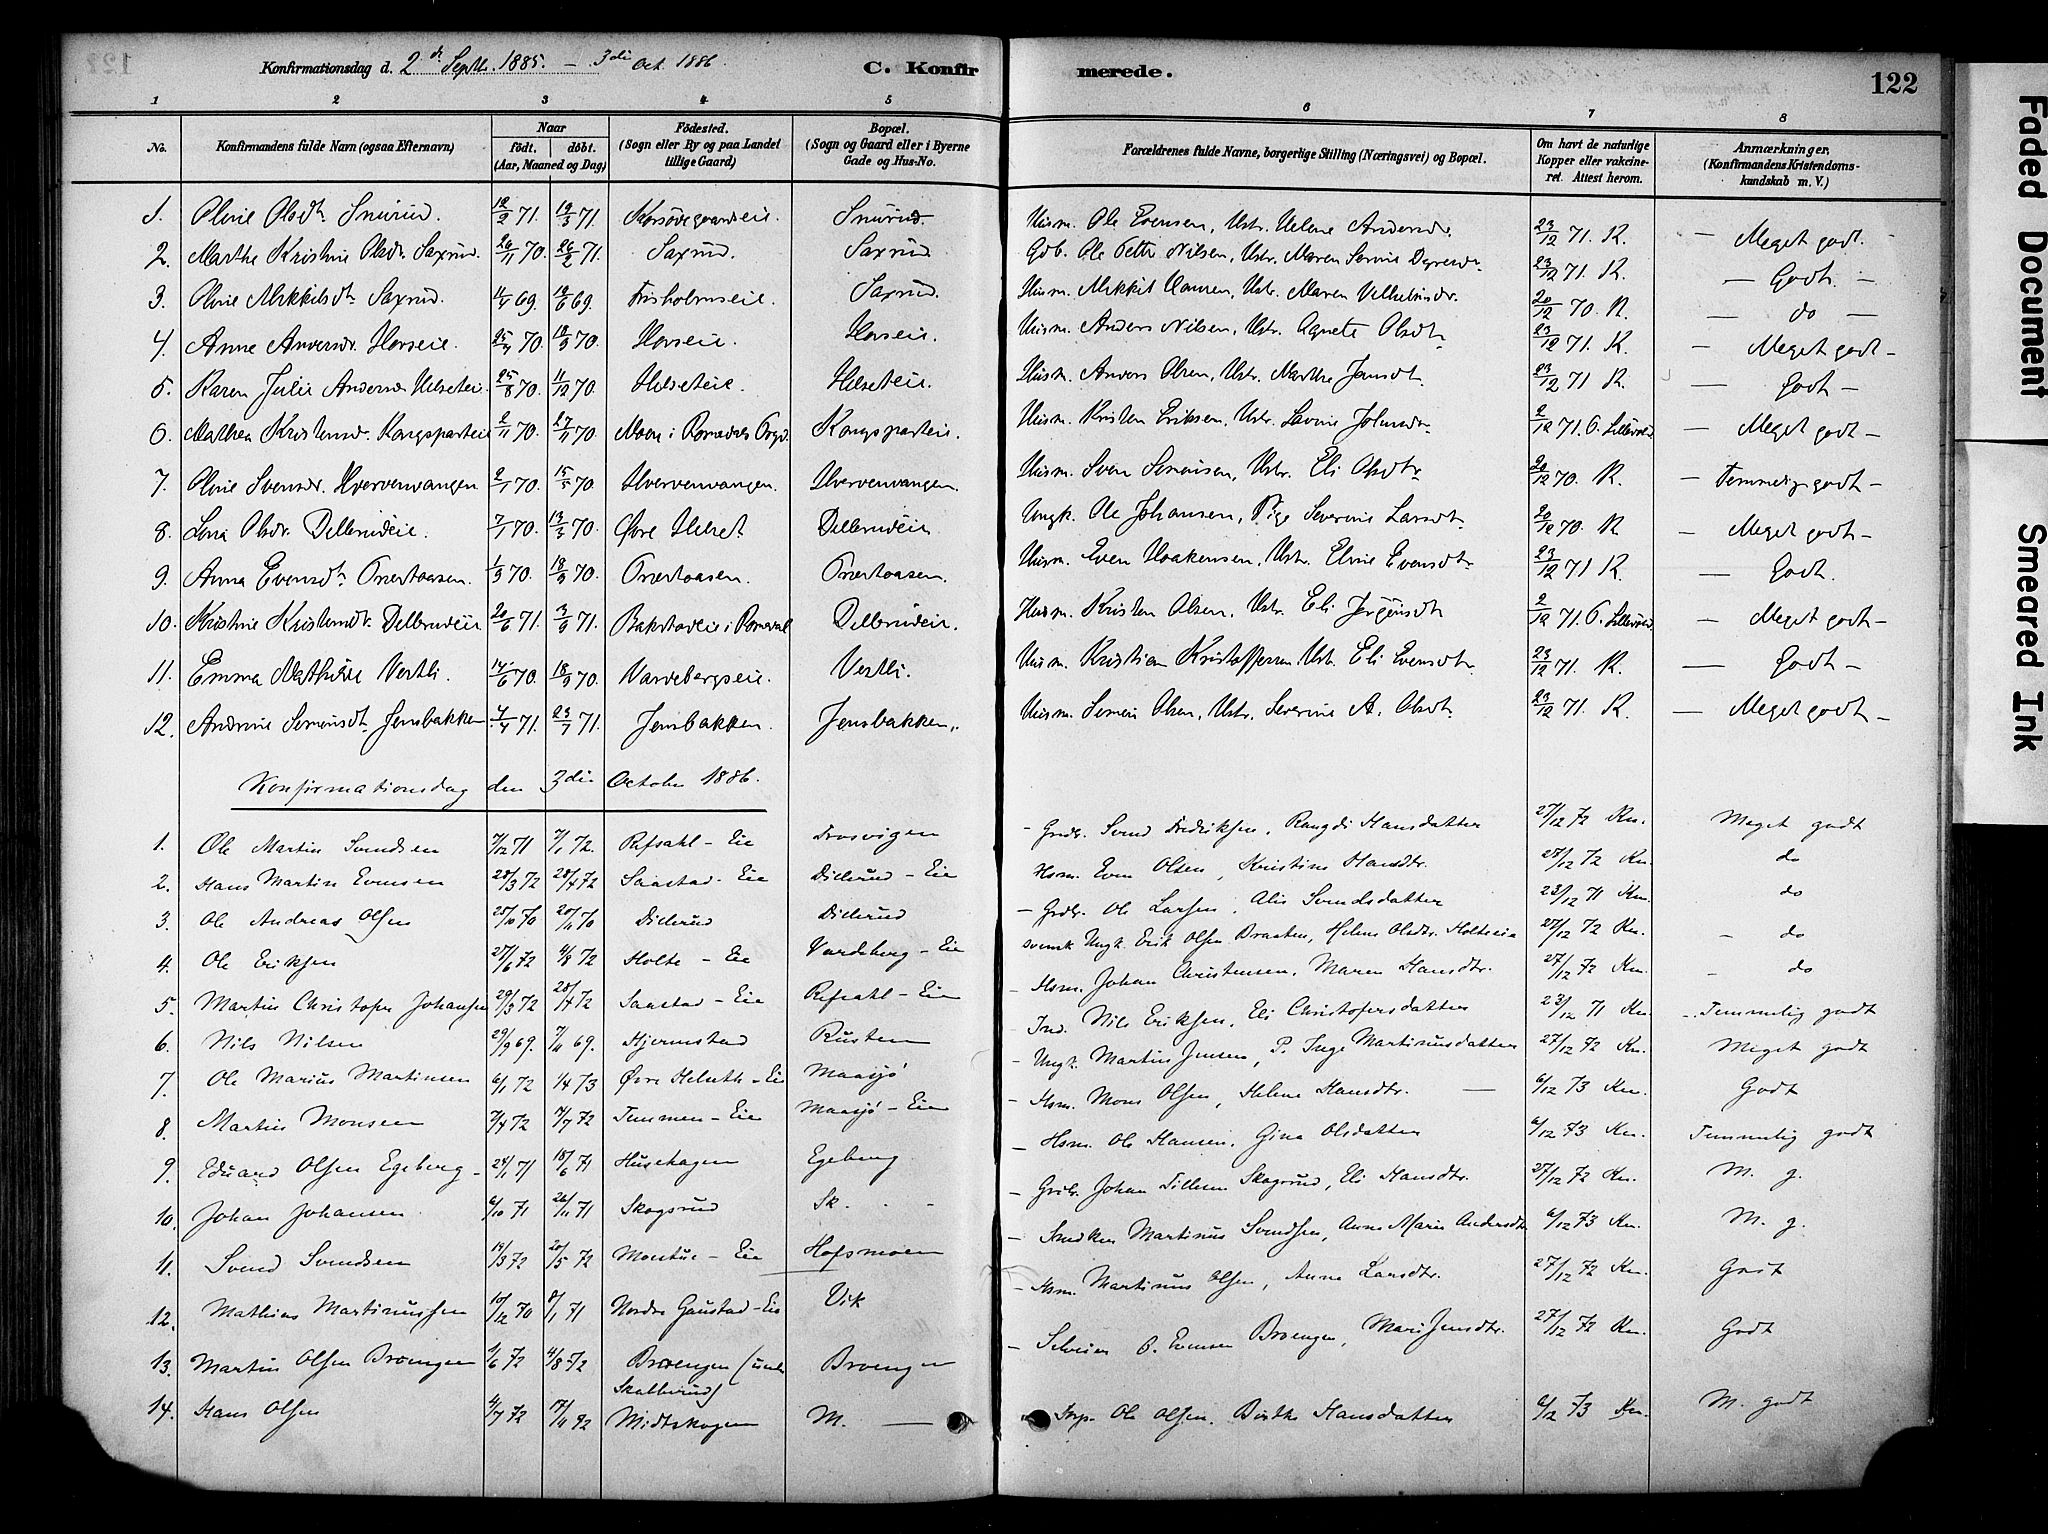 Konfirmationsdag d. 2den Septb. 1885. – 3die Oct. 1886.
C. Konfirmerede.
122
1 2 3 4 5 6 7 8
No.
Konfirmandens fulde Navn (ogsaa Efternavn)
Naar
födt. döbt.
(Aar, Maaned og Dag)
Födested.
(Sogn eller By og paa Landet
tillige Gaard)
Bopæl.
(Sogn og Gaard eller i Byerne
Gade og Hus-No.
Forældrenes fulde Navne, borgerlige Stilling (Næringsvei) og Bopæl.
Om havt de naturlige
Kopper eller vakcine-
ret. Attest herom.
Anmærkninger,
(Konfirmandens Kristendoms-
kundskab m. V.)
1. Oline Olsdtr Snurud. 12/2 71. 19/3 71. Snurud. Husm. Ole Evensen, Ustr. Helene Andersdr. 23/12 71. K. – Meget godt.
2. Marthe Kristine Olsdr. Saxrud. 26/11 70. 26/2 71. Saxrud. Saxrud. Gdb. Ole Petter Nilsen, Ustr. Maren 23/12 71. K. – Godt. –
3. Oline Mikkelsdtr Saxrud. 11/4 69. 19/6 69. Frisholmseie. Saxrud. Husm. Mikkel Hansen, Ustr. Maren Vilhelmsdr. 20/12 70. K. – do –
4. Anne Andersdr. Horseie. 25/4 70. 18/9 70. Horseie. Horseie. Husm. Anders Nilsen, Ustr. Agnete Olsdtr 23/12 71. K. – Meget godt –
5. Karen Julie Andersdr Helseteie. 25/8 70. 11/12 70. Helseteie. Helseteie. Husm. Anders Olsen, Ustr. Marthe Jensdtr. 23/12 71 K. – Godt –
6. Mathea Kristensdr. Kongsparteie 2/11 70. 27/11 70. Moen i Romedal Kongsparteie. Husm. Kristen Eriksen, Ustr. Lovise Johnsdr 2/12 71. O. Lillevold – Meget godt –
7. Oline Svensdr. Hvervenvangen 2/1 70. 15/5 70. Hvervenvangen. Hvervenvangen. Husm. Sven Simensen, Ustr. Eli Olsdtr 20/12 70. K. – Temmelig godt –
8. Lena Olsdr. Dillerudeie. 7/1 70. 13/3 70. Øvre Helset Dillerudeie Ungk. Ole Johansen, Pige Severine Larsdtr. 20/12 70. K – Meget godt –
9. Anna Evensdtr 1/3 70. 18/9 70. Husm. Even Haakensen, Ustr. Eline Evensdtr 23/12 71 K. – Godt.
10. Kristine Kristensdtr. Dillerudeie 20/6 71. 3/9 71. Dillerudeie. Husm. Kristen Olsen, Ustr. Eli Jørgensdtr 2/12 71. O. Lillevold – Meget godt –
11. Emma Mathisse Vestli. 14/6 70. 18/9 70. Vardebergseie. Vestli. Husm. Kristian Kristoffersen, Ustr. Eli Evensdtr 23/12 71. K. – Godt –
12. Andrine Simensdtr Jensbakken 4/4 71. 23/7 71. Jensbakken. Jensbakken. Husm. Simen Olsen, Ustr. Severine A. Olsdtr. 23/12 71. K. – Meget godt –
Konfirmationsdag den 3die October 1886.
1. Ole Martin Svendsen 7/12 71 7/1 72. Refsahl – Eie Trosvigen – Grdbr. Svend Fredriksen, Rangdi Hansdatter 27/12 72 Kn. Meget godt
2. Hans Martin Evensen 28/3 72 28/4 72 Saastad – Eie Dillerud – Eie Hsm. Even Olsen, Kristine Hansdtr. 27/12 72 Kn. do
3. Ole Andreas Olsen 25/10 70 20/11 70 Dillerud Dillerud – Grdbr. Ole Larsen, Alis Svendsdatter 23/12 71 Kn. do
4. Ole Eriksen 27/6 72 4/8 72 Holte – Eie Vardeberg – Eie svensk Ungk. Erik Olsen Braaten, Helene Olsdtr. Holteeie 27/12 72 Kn. – do
5. Martin Christofer Johansen 29/3 72 28/4 72 Saastad – Eie Refsahl – Eie – Hsm. Johan Christensen, Maren Hansdtr. 27/12 72 Kn. – do
6. Nils Nilsen 29/9 69. 7/11 69. Hjermstad Rusten Ind. Nils Eriksen, Eli Christofersdatter 23/12 71 Kn. – Temmelig godt
7. Ole Marius Martinsen 6/1 72 1/4 73 Øvre Helseth – Eie Maasjö – Ungk. Martin Jensen, P. Inge Martinusdatter 27/12 72 Kn. Meget godt
8. Martin Monsen 7/4 72 7/7 72 Temmen – Eie Maasjö – Eie – Hsm. Mons Olsen, Helene Hansdtr. – 6/12 73 Kn. Godt
9. Eduard Olsen Egeberg – 24/1 71 18/6 71 Husehagen Egeberg – Hsm. Ole Hansen, Gina Olsdatter 6/12 73 Kn. Temmelig godt
10. Johan Johansen. 6/10 71 26/11 71 Skogsrud Sk. – Grdbr. Johan Tillesen Skogsrud, Eli Hansdtr. 27/12 72 Kn. M. g.
11. Svend Svendsen 14/3 72 20/5 72 Monstue – Eie Hofsmoen – Snedker Martinus Svendsen, Anne Marie Andersdtr 6/12 73 Kn. M. g.
12. Mathias Martinussen 10/12 70 8/1 71 Nordre Gaustad – Eie Vik – Hsm. Martinus Olsen, Anne Larsdtr. 27/12 72 Kn. Godt
13. Martin Olsen Broengen 9/6 72 4/8 72 Broengen (under Skallerud) Broengen – Selveier O. Evensen Broengen, Mari Jensdtr. 27/12 72 Kn. Godt
14. Hans Olsen 4/7 72 17/11 72 Midtskogen M. – – Ole Olsen, Birthe Hansdatter 6/12 73 Kn. M. godt
Faded Document
Smeared Ink